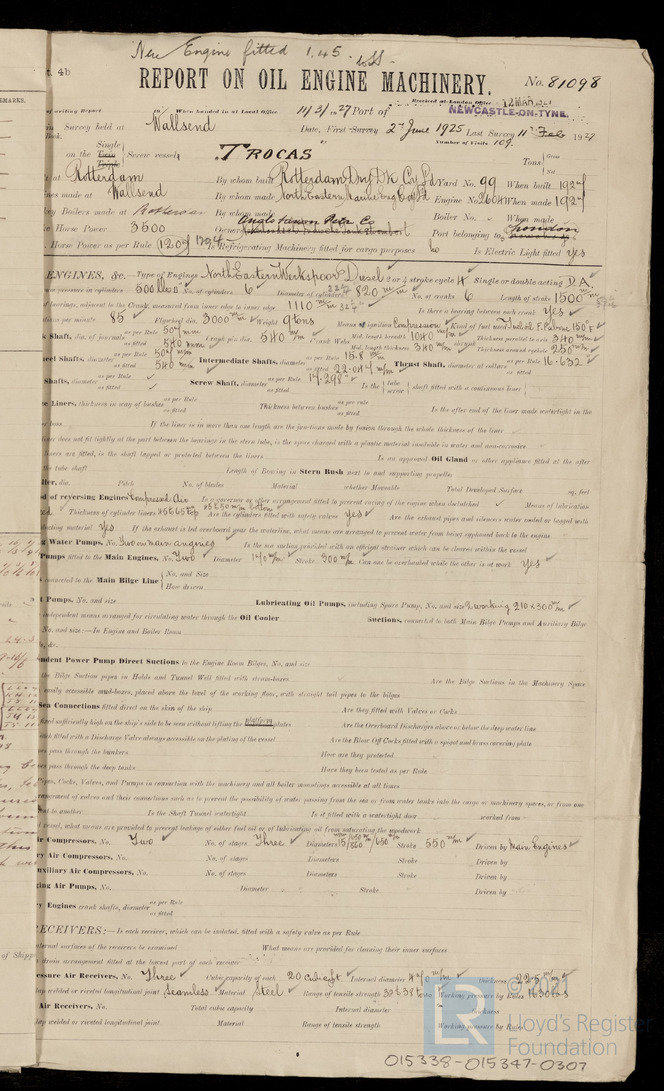 New Engine fitted 1.45
pt. 4b
REPORT ON OIL ENGINE MACHINERY.
No. 81098
Received at London Office 12 MAR
of writing Report 19 When handed in at Local Office 11/3/1927 Port of NEWCASTLE-ON-TYNE.
in Survey held at Wallsend Date, First Survey 2nd June 1925 Last Survey 11th Feb 1927
Book. Number of Visits 109.
on the Single Twin Triple Screw vessel "TROCAS" Tons Gross Net
at Rotterdam By whom built Rotterdam Dry Dk Coy Ld Yard No. 99 When built 1927
nes made at Wallsend By whom made North Eastern Marine Eng Co Ld Engine No. 2604 When made 1927
y Boilers made at Rotterdam By whom made Boiler No. When made
e Horse Power 3500 Owners Anglo Saxon Petr Co Port belonging to London
. Horse Power as per Rule 1209 1294 Is Refrigerating Machinery fitted for cargo purposes no Is Electric Light fitted yes
ENGINES, &c. Type of Engines North Eastern Werkspoor Diesel 2 or 4 stroke cycle 4 Single or double acting D.A.
pressure in cylinders 500 lbs No. of cylinders 6 Diameter of cylinders 820 m/m No. of cranks 6 Length of stroke 1500 m/m
of bearings, adjacent to the Crank, measured from inner edge to inner edge 1110 m/m Is there a bearing between each crank yes
ions per minute 85 Flywheel dia. 3000 m/m Weight 9 tons Means of ignition Compression Kind of fuel used
k Shaft, dia. of journals as per Rule 507 mm as fitted 540 m/m Crank pin dia. 540 m/m Crank Webs Mid. length breadth 1040 m/m Mid. length thickness 340 m/m Thickness parallel to axis 340 m/m Thickness around eyehole 250 m/m
eel Shafts, diameter as per Rule 507 m/m as fitted 540 m/m Intermediate Shafts, diameter as per Rule 15.8 as fitted Thrust Shaft, diameter at collars as per Rule 16.632 as fitted
Shafts, diameter as per Rule as fitted Screw Shaft, diameter as per Rule 17.298" as fitted Is the tube screw shaft fitted with a continuous liner
e Liners, thickness in way of bushes as per Rule as fitted Thickness between bushes as per rule as fitted Is the after end of the liner made watertight in the
er boss If the liner is in more than one length are the junctions made by fusion through the whole thickness of the liner
does not fit tightly at the part between the bearings in the stern tube, is the space charged with a plastic material insoluble in water and non-corrosive
liners are fitted, is the shaft lapped or protected between the liners Is an approved Oil Gland or other appliance fitted at the after
the tube shaft Length of Bearing in Stern Bush next to and supporting propeller
ller, dia. Pitch No. of blades Material whether Moveable Total Developed Surface sq. feet
od of reversing Engines Compressed Air Is a governor or other arrangement fitted to prevent racing of the engine when declutched Means of lubrication
Thickness of cylinder liners Are the cylinders fitted with safety valves yes Are the exhaust pipes and silencers water cooled or lagged with
ducting material yes If the exhaust is led overboard near the waterline, what means are arranged to prevent water being syphoned back to the engine
g Water Pumps, No. Two on main engines Is the sea suction provided with an efficient strainer which can be cleared within the vessel
Pumps fitted to the Main Engines, No. Two Diameter 140 m/m Stroke 300 m/m Can one be overhauled while the other is at work yes
connected to the Main Bilge Line No. and Size How driven
t Pumps, No. and size Lubricating Oil Pumps, including Spare Pump, No. and size 2 working 210 x 300 m/m
independent means arranged for circulating water through the Oil Cooler Suctions, connected to both Main Bilge Pumps and Auxiliary Bilge
No. and size:—In Engine and Boiler Room
ds, &c.
ndent Power Pump Direct Suctions to the Engine Room Bilges, No. and size
the Bilge Suction pipes in Holds and Tunnel Well fitted with strum-boxes Are the Bilge Suctions in the Machinery Space
easily accessible mud-boxes, placed above the level of the working floor, with straight tail pipes to the bilges
Sea Connections fitted direct on the skin of the ship Are they fitted with Valves or Cocks
fixed sufficiently high on the ship's side to be seen without lifting the platform plates Are the Overboard Discharges above or below the deep water line
each fitted with a Discharge Valve always accessible on the plating of the vessel Are the Blow Off Cocks fitted with a spigot and brass covering plate
pass through the bunkers How are they protected
pass through the deep tanks Have they been tested as per Rule
Pipes, Cocks, Valves, and Pumps in connection with the machinery and all boiler mountings accessible at all times
rangement of valves and their connections such as to prevent the possibility of water passing from the sea or from water tanks into the cargo or machinery spaces, or from one
ent to another Is the Shaft Tunnel watertight Is it fitted with a watertight door worked from
vessel, what means are provided to prevent leakage of either fuel oil or of lubricating oil from saturating the woodwork
ir Compressors, No. Two No. of stages Three Diameters Stroke 550 m/m Driven by Main Engines
ry Air Compressors, No. No. of stages Diameters Stroke Driven by
uxiliary Air Compressors, No. No. of stages Diameters Stroke Driven by
ging Air Pumps, No. Diameter Stroke Driven by
ry Engines crank shafts, diameter as per Rule as fitted
ECEIVERS:—Is each receiver, which can be isolated, fitted with a safety valve as per Rule
ternal surfaces of the receivers be examined What means are provided for cleaning their inner surfaces
drain arrangement fitted at the lowest part of each receiver
essure Air Receivers, No. Three Cubic capacity of each 20 cubic ft Internal diameter thickness 22.5 m/m
lap welded or riveted longitudinal joint Seamless Material Steel Range of tensile strength Working pressure by Rules
Air Receivers, No. Total cubic capacity Internal diameter thickness
lap welded or riveted longitudinal joint Material Range of tensile strength Working pressure by Rules
© 2021
LR
Lloyd's Register
Foundation
015338-015347-0307